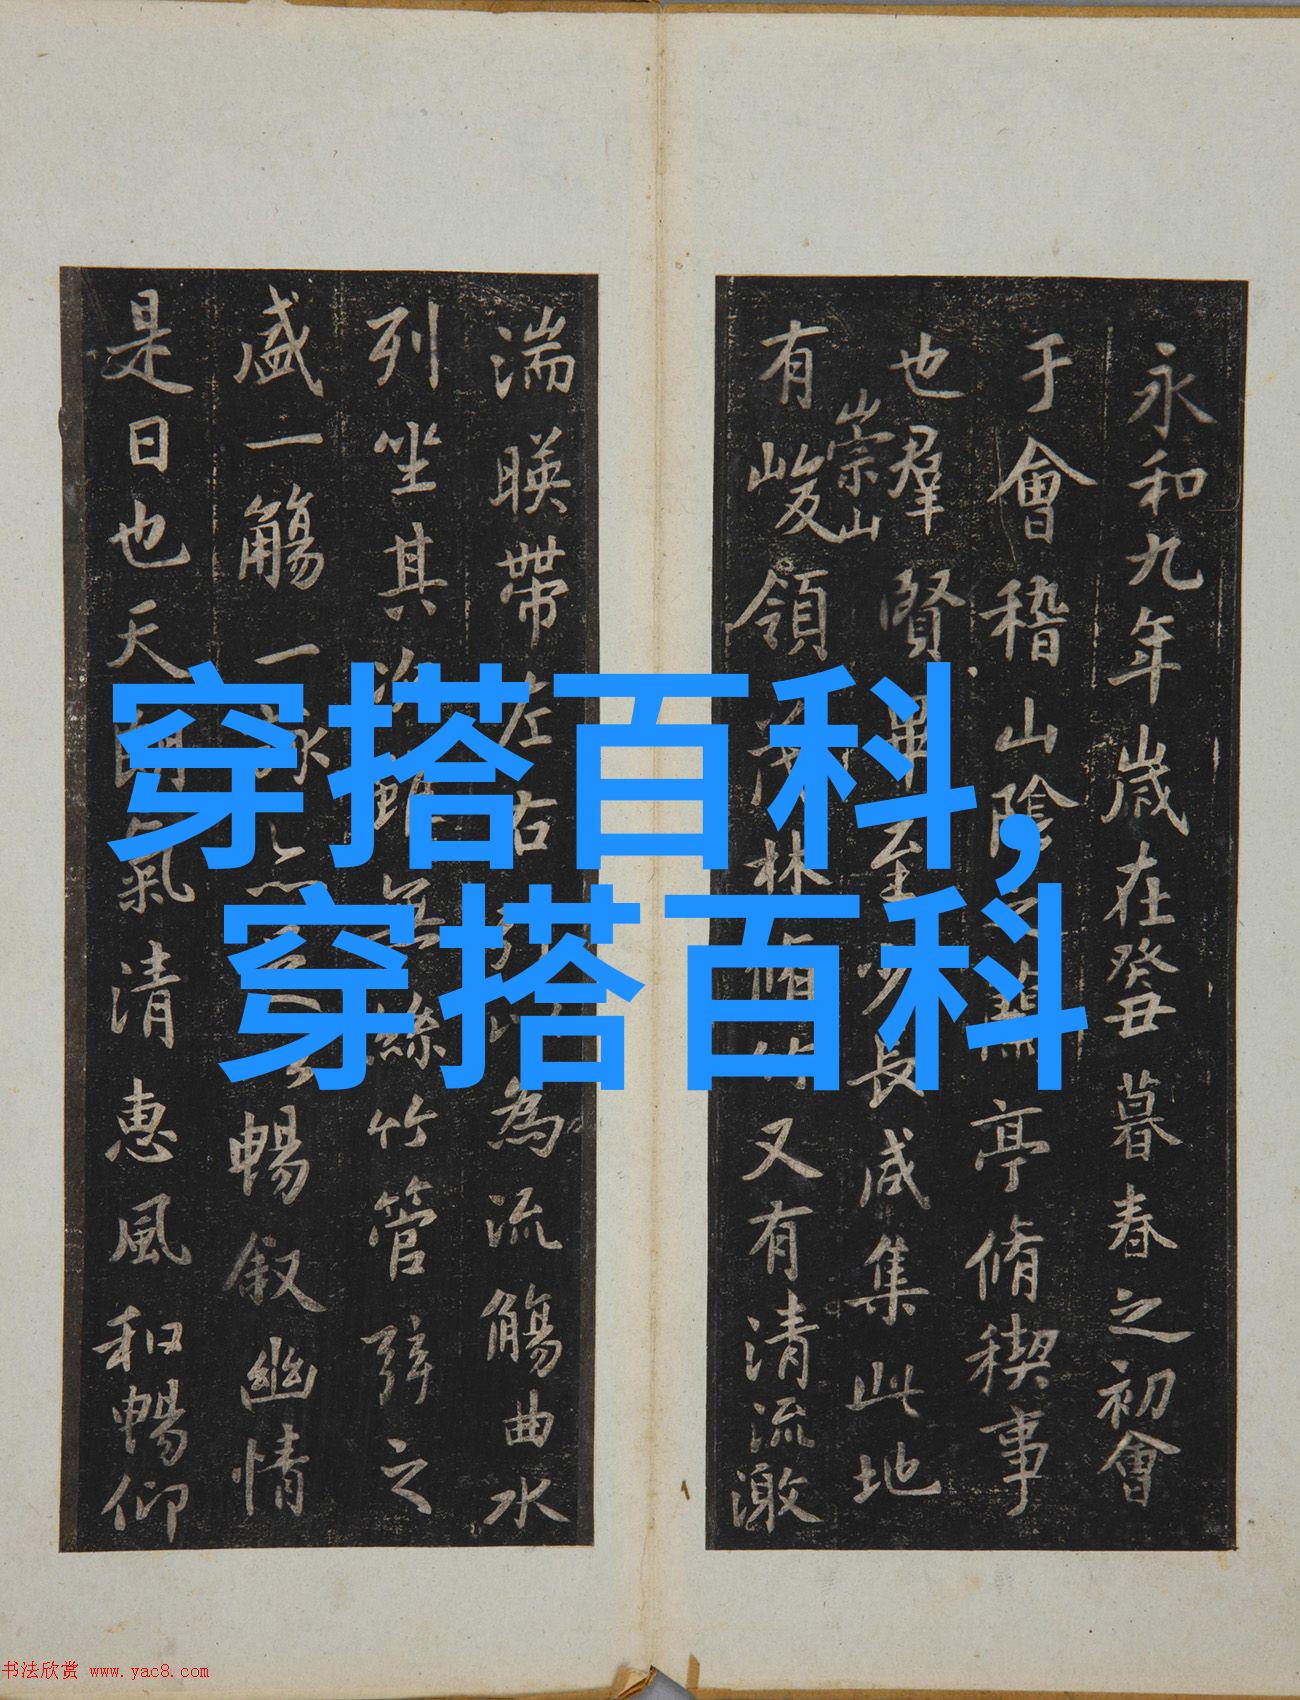 永和九年歲在癸丑暮春之初會
于會稽山陰之蘭亭脩禊事
也羣賢畢至少長咸集此地
崇山
有峻領茂林脩竹又有清流激
湍暎帶左右引以為流觴曲水
列坐其次雖無絲竹管弦之
盛一觴一詠暢叙幽情
是日也天朗氣清惠風和暢仰
穿搭百科,
穿搭百科
书法欣赏 www.yac8.com